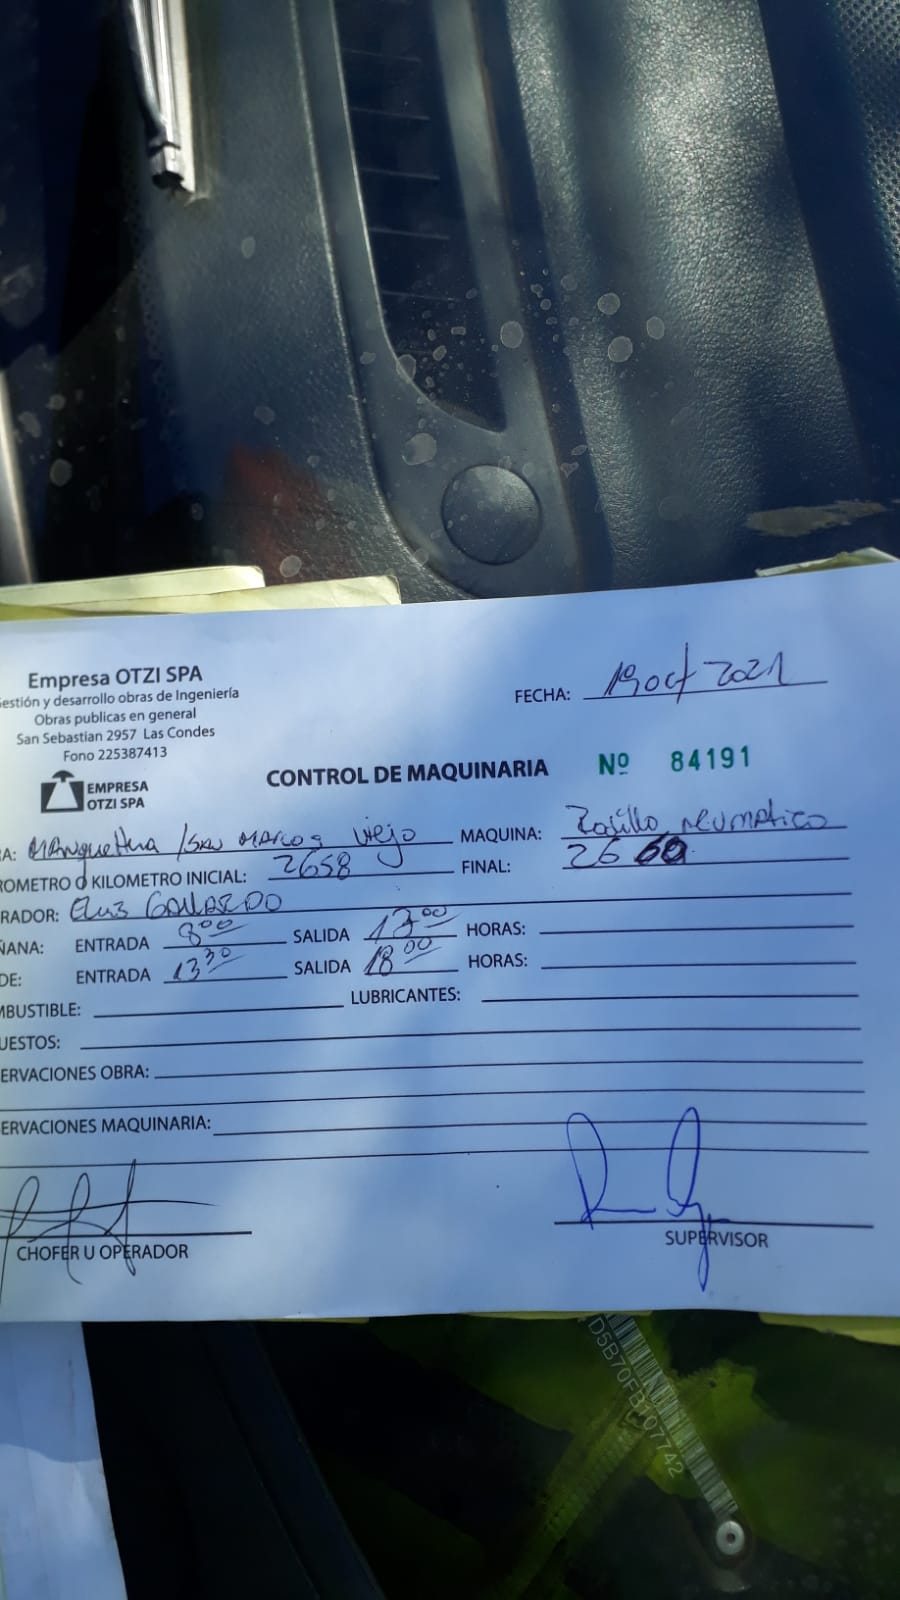 Empresa OTZI SPA
Gestión y desarrollo obras de Ingeniería
Obras publicas en general
San Sebastian 2957 Las Condes
Fono 225387413
EMPRESA
OTZI SPA
FECHA: 19 oct 2021
CONTROL DE MAQUINARIA Nº 84191
RA: Manquehua / San Marcos Viejo MAQUINA: Rodillo neumatico
ROMETRO O KILOMETRO INICIAL: 2658 FINAL: 2660
RADOR: GALLARDO
ÑANA: ENTRADA 8:00 SALIDA 13:00 HORAS:
DE: ENTRADA 13:30 SALIDA 18:00 HORAS:
MBUSTIBLE: LUBRICANTES:
UESTOS:
ERVACIONES OBRA:
ERVACIONES MAQUINARIA:
CHOFER U OPERADOR
SUPERVISOR
D5B70FB107742